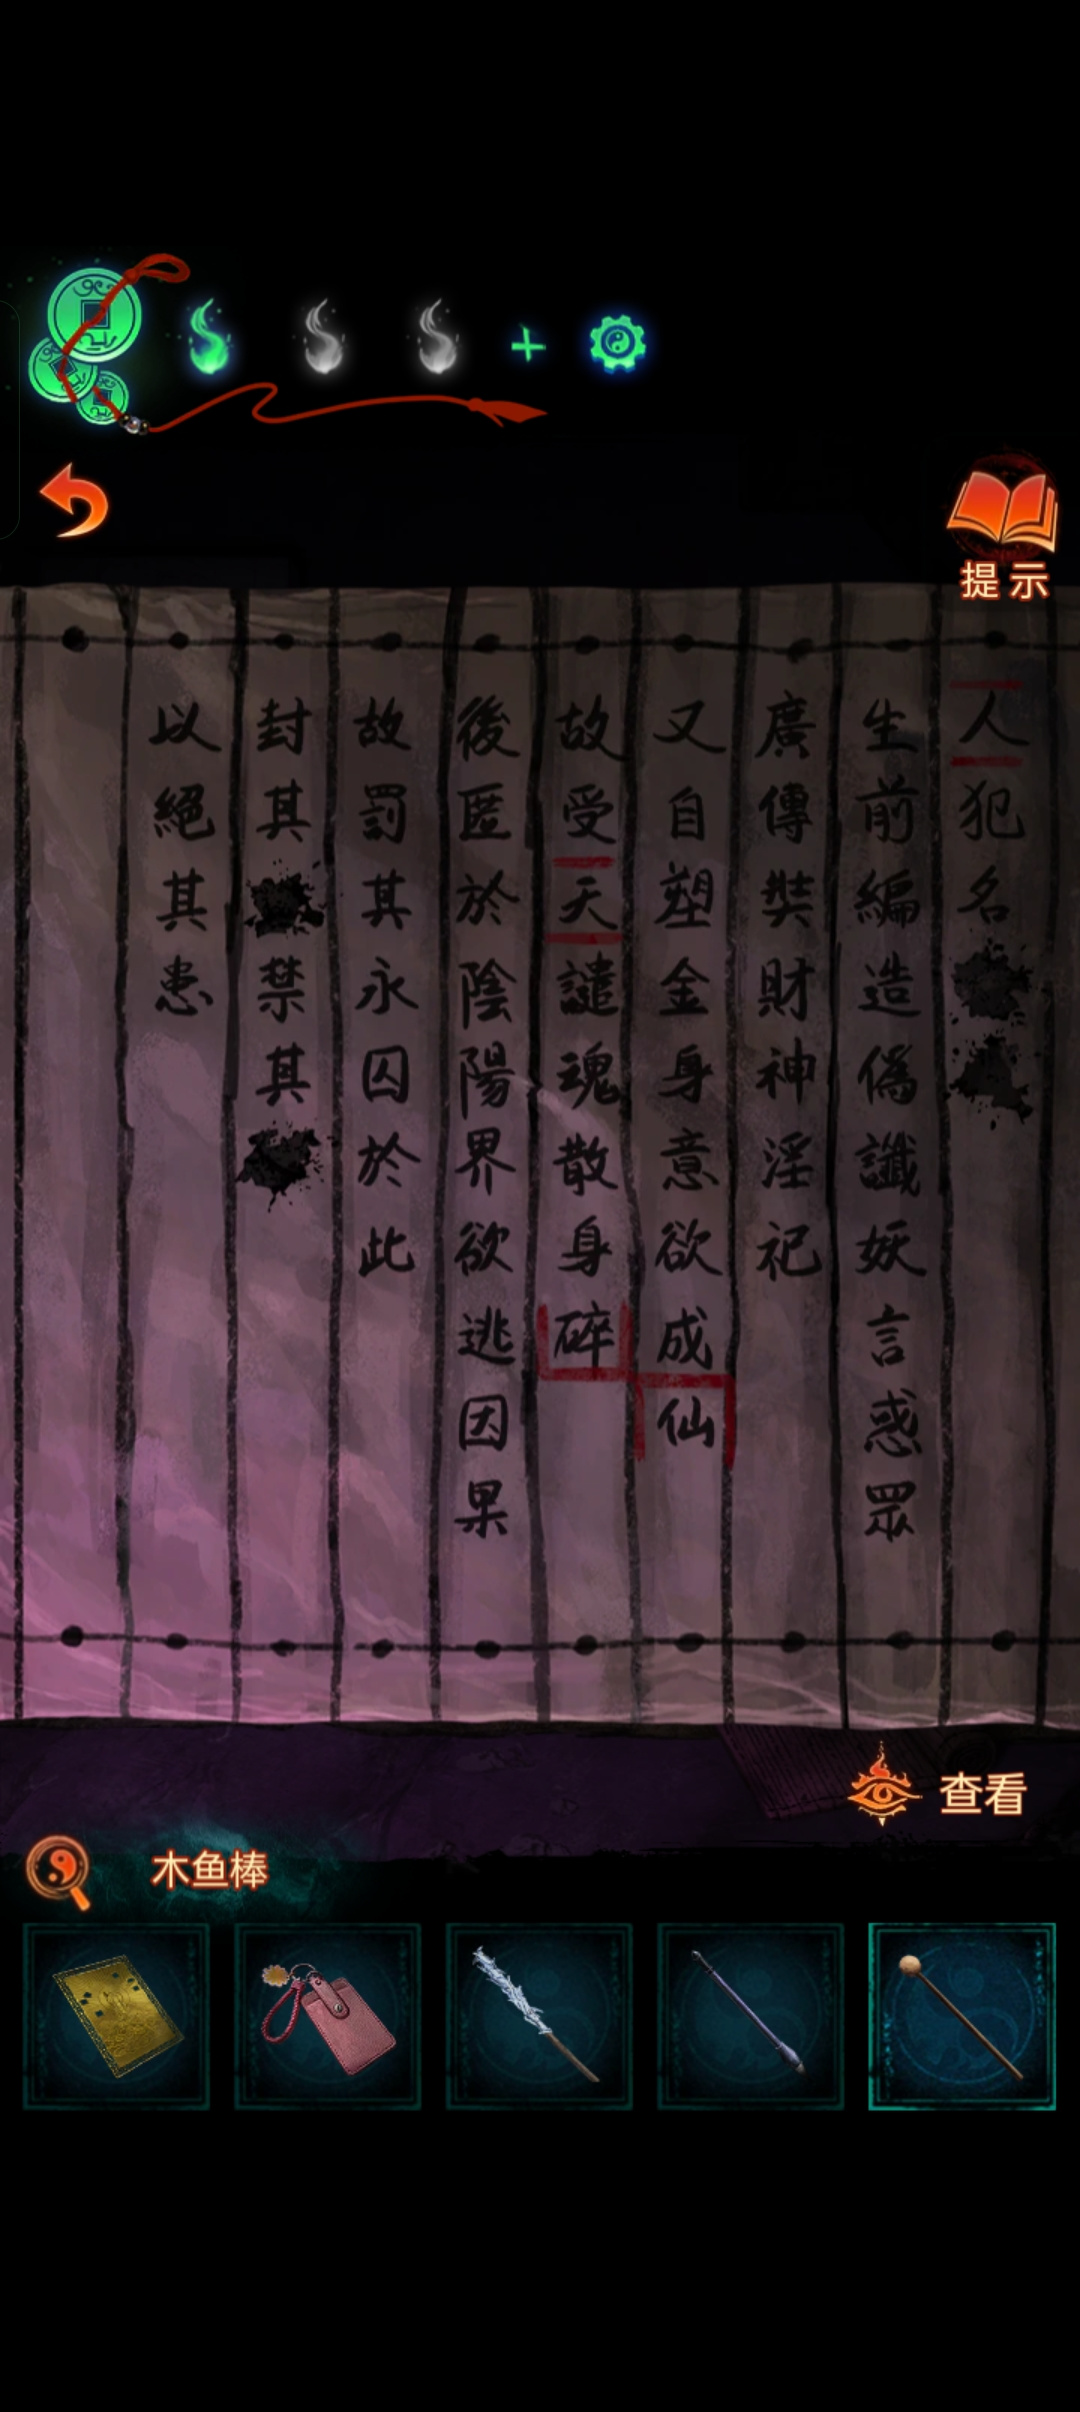 提示
人犯名
生前編造偽讖妖言惑眾
廣傳奘財神淫祀
又自塑金身意欲成仙
故受天譴魂散身碎
後匿於陰陽界欲逃因果
故罰其永囚於此
封其禁其
以絕其患
查看
木鱼棒